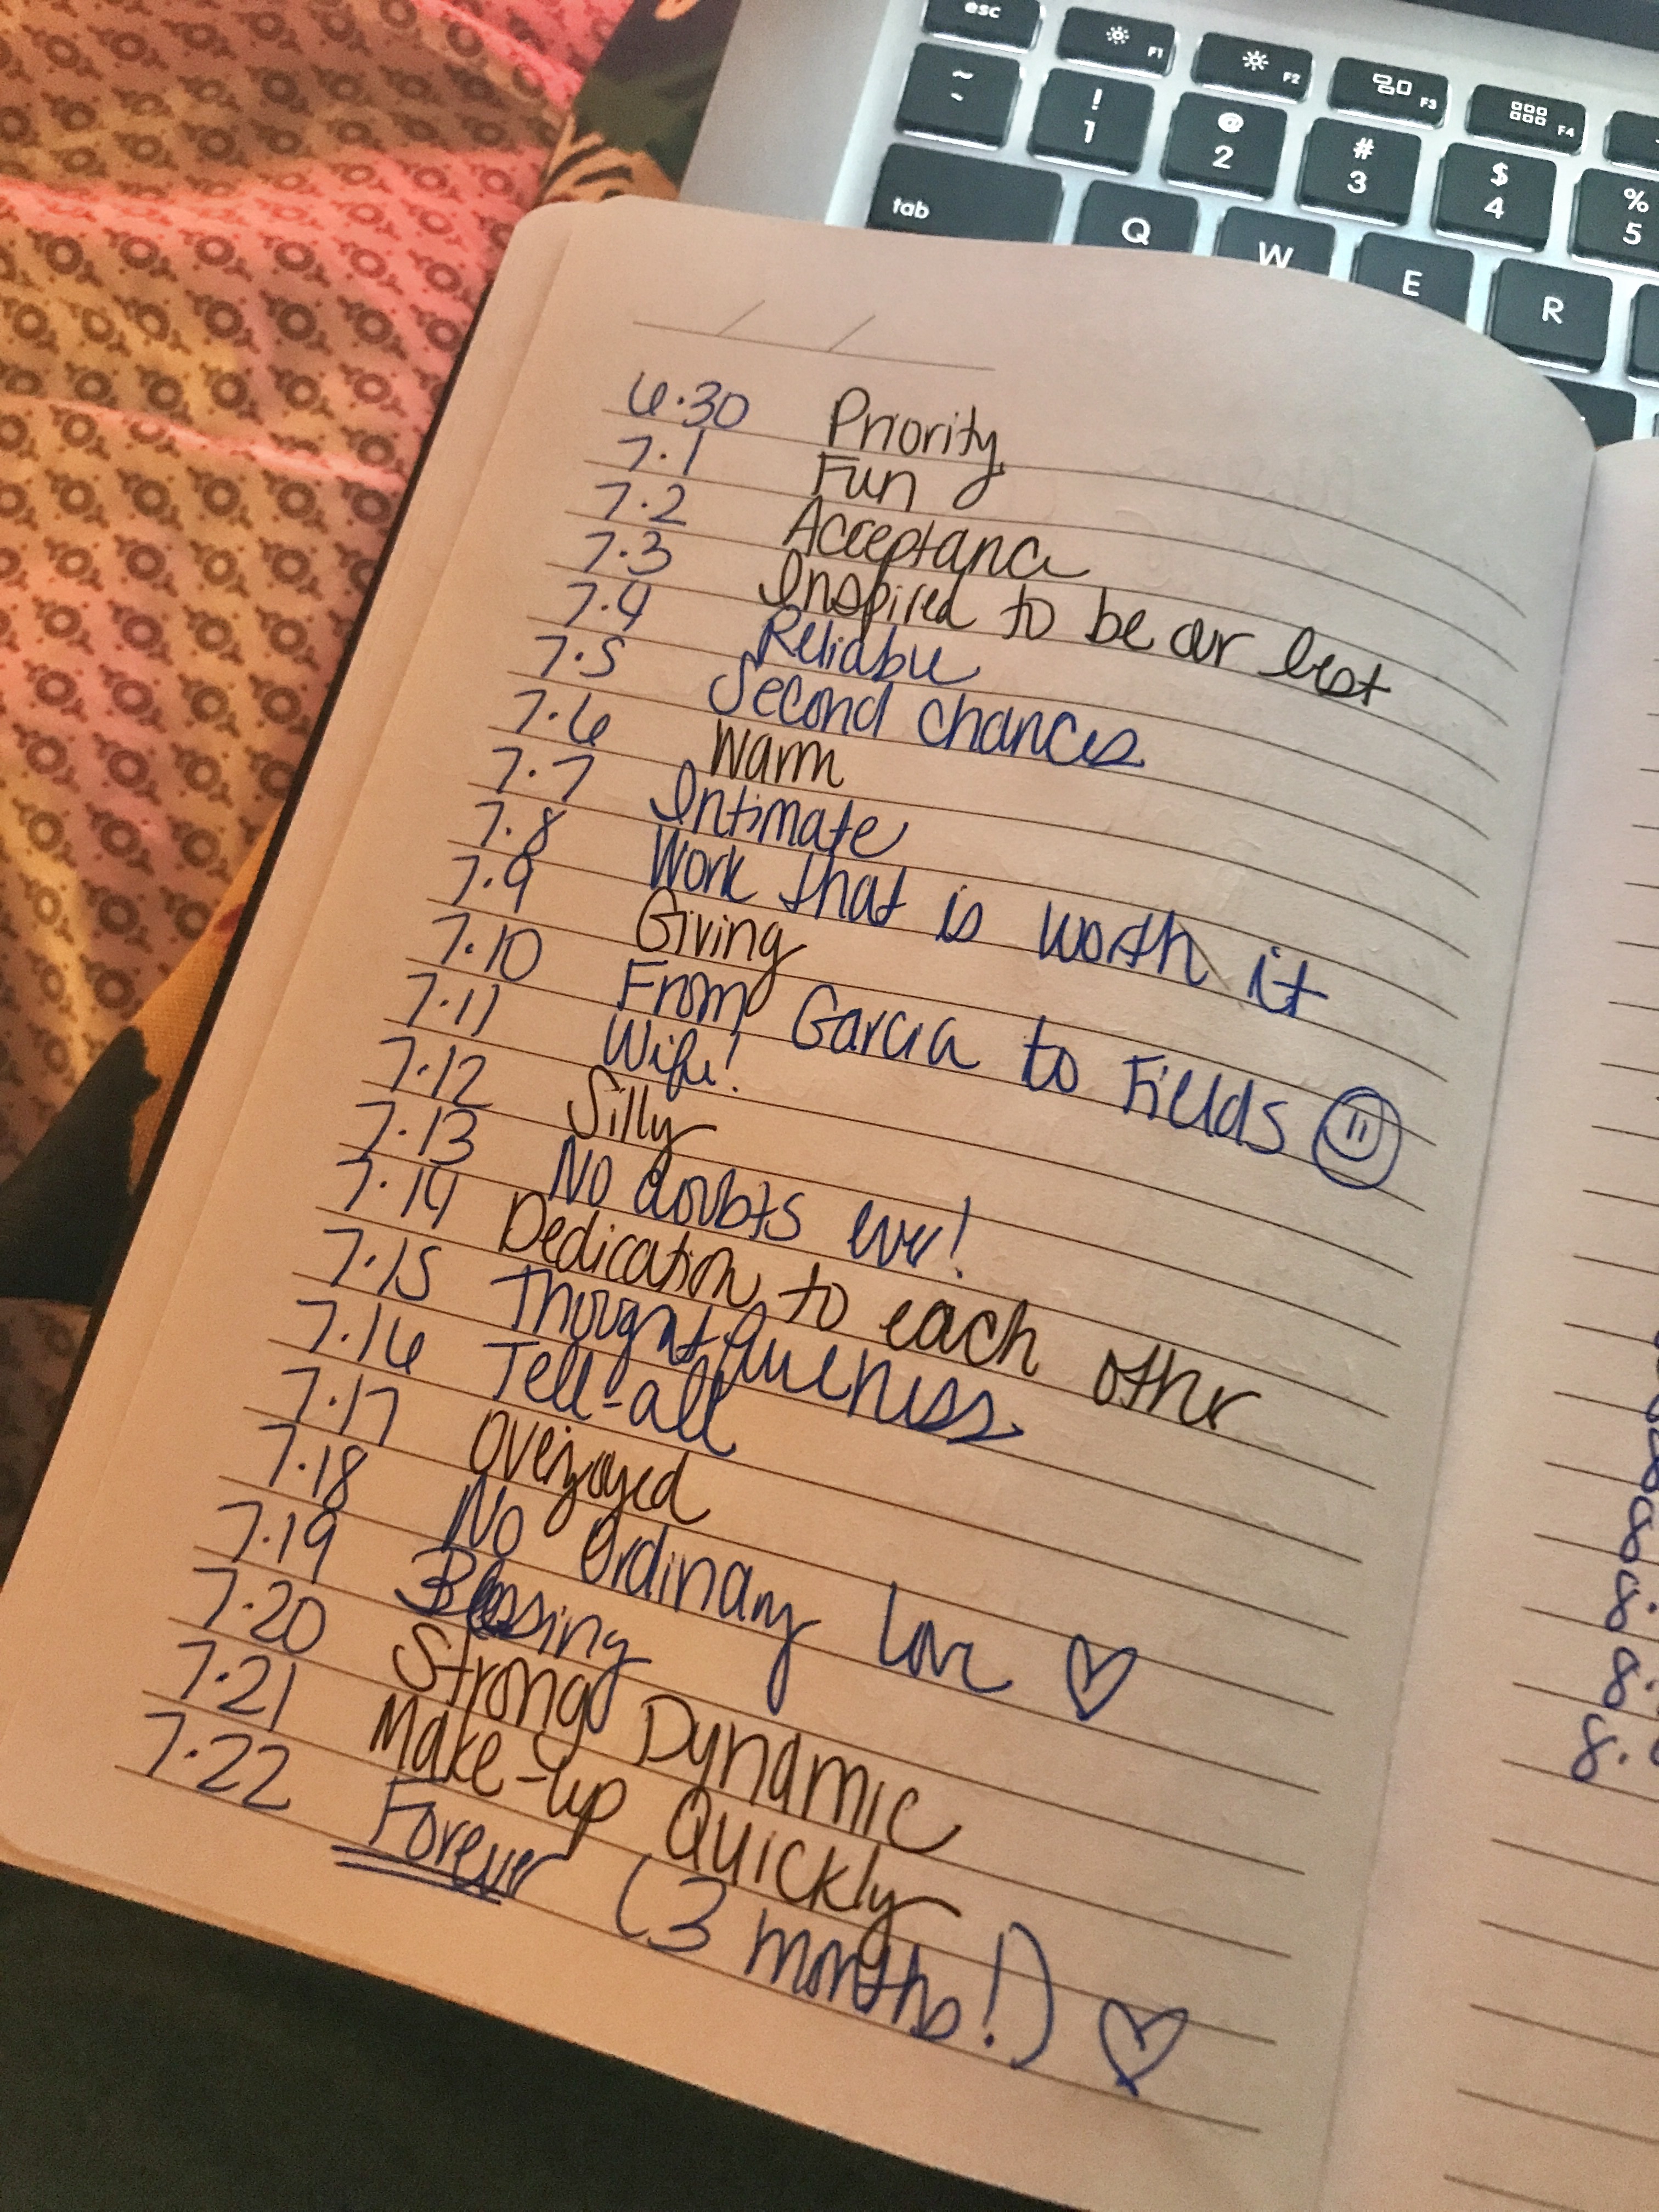 esc
F1
F2
F3
F4
~
`
!
1
@
2
#
3
$
4
%
5
tab
Q
W
E
R
6.30 Priority
7.1 Fun
7.2 Acceptance
7.3 Inspired to be our best
7.4 Reliable
7.5 Second chances
7.6 Warm
7.7 Intimate
7.8 Work that is worth it
7.9 Giving
7.10 From Garcia to Fields
7.11 Wife!
7.12 Silly
7.13 No doubts ever!
7.14 Dedication to each other
7.15 Thoughtfulness
7.16 Tell-all
7.17 Overjoyed
7.18 No Ordinary Love ♡
7.19 Blessing
7.20 Strong Dynamic
7.21 Make-up Quickly
7.22 Forever (3 months!) ♡
8
8.
8.
8.